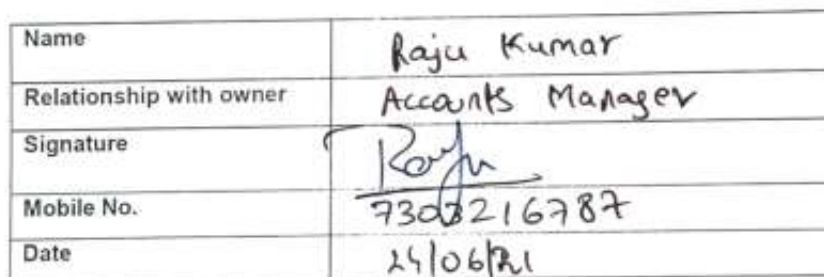 Name Raju Kumar
Relationship with owner Accounts Manager
Signature Raju
Mobile No. 7303216787
Date 24/06/21